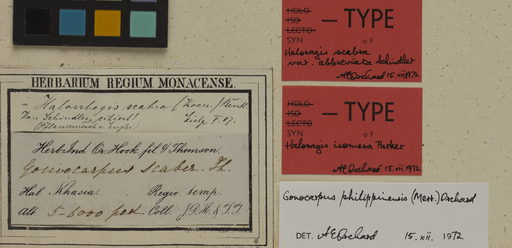 HERBARIUM REGIUM MONACENSE.
Halorrhagis scabra (Koen.) Benth
Herb. Ind. Or. Hook. fil. & Thomson.
Gonocarpus scaber. Th.
Hab. Khasia. Regio temp.
Alt. 5-6000 ped. Coll. J.D.H. & T.T.
HOLO-
ISO
LECTO
SYN
- TYPE
of
Haloragis scabra
var. abbreviata Schindler
AEOrchard 15.xii.1972
HOLO-
ISO
LECTO
SYN
- TYPE
of
Haloragis isomera Parker
AEOrchard 15.xii.1972
Gonocarpus philippinensis (Merr.) Orchard
DET. AEOrchard 15.xii.1972